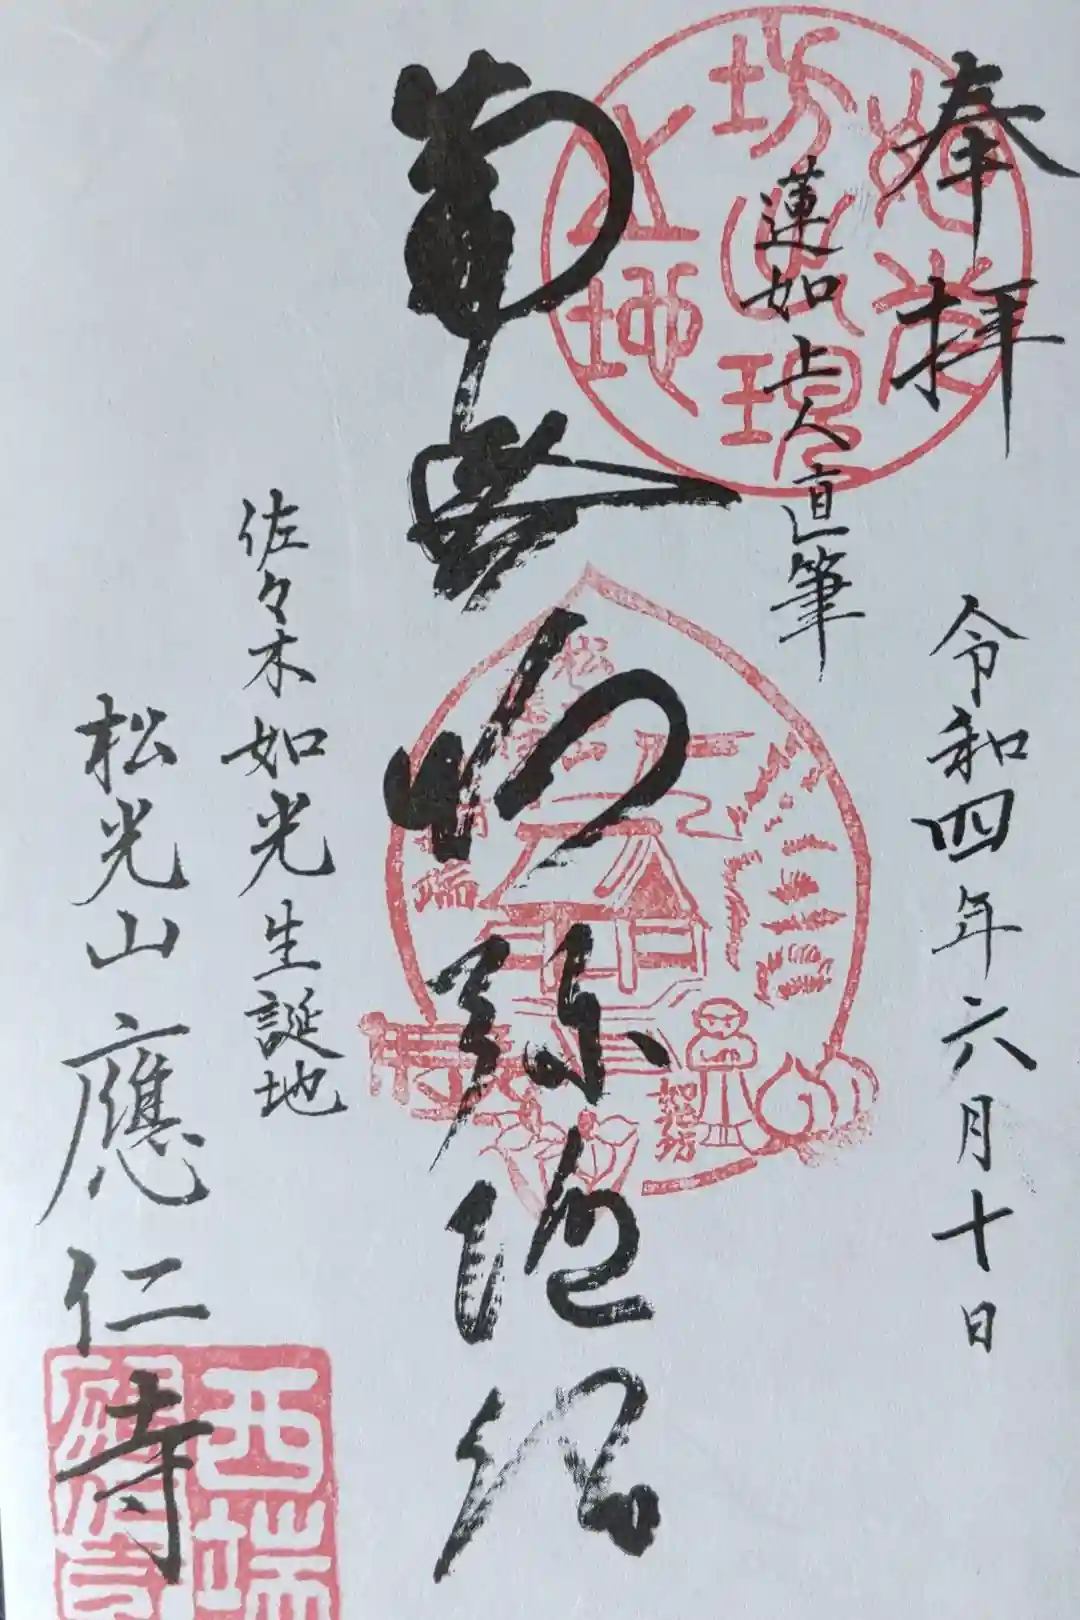 奉拝
令和四年六月十日
蓮如上人直筆
南无阿弥陀仏
佐々木如光生誕地
松光山應仁寺
西端
應仁寺
如光坊